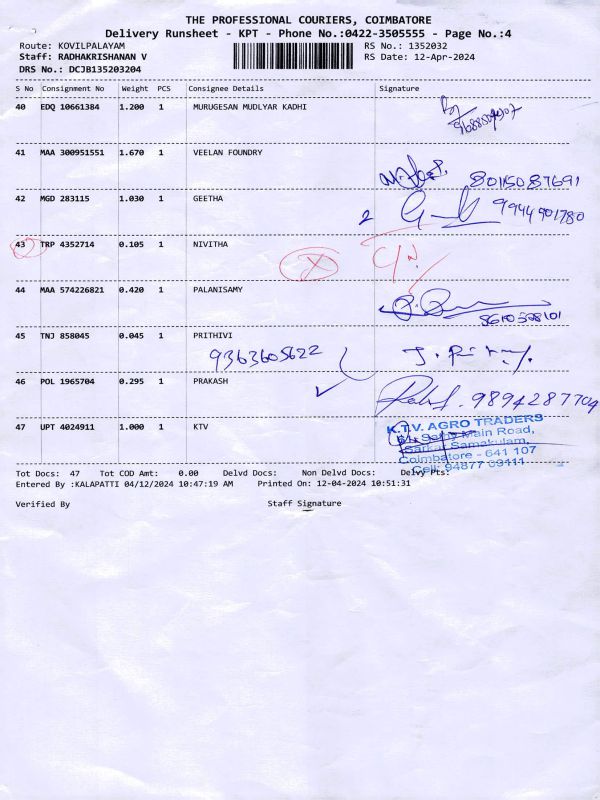 THE PROFESSIONAL COURIERS, COIMBATORE
Delivery Runsheet - KPT - Phone No.:0422-3505555 - Page No.:4
Route: KOVILPALAYAM RS No.: 1352032
Staff: RADHAKRISHANAN V RS Date: 12-Apr-2024
DRS No.: DCJB135203204
S No Consignment No Weight PCS Consignee Details Signature
40 EDQ 10661384 1.200 1 MURUGESAN MUDLYAR KADHI
41 MAA 300951551 1.670 1 VEELAN FOUNDRY
8015087691
42 MGD 283115 1.030 1 GEETHA
2 9944901780
43 TRP 4352714 0.105 1 NIVITHA
44 MAA 574226821 0.420 1 PALANISAMY
45 TNJ 858045 0.045 1 PRITHIVI
9363605622
46 POL 1965704 0.295 1 PRAKASH
9894287704
47 UPT 4024911 1.000 1 KTV
K.T.V. AGRO TRADERS
Main Road,
Samakulam,
Coimbatore - 641 107
Cell: 94877 09111
Tot Docs: 47 Tot COD Amt: 0.00 Delvd Docs: Non Delvd Docs: Delvy Pts:
Entered By :KALAPATTI 04/12/2024 10:47:19 AM Printed On: 12-04-2024 10:51:31
Verified By Staff Signature